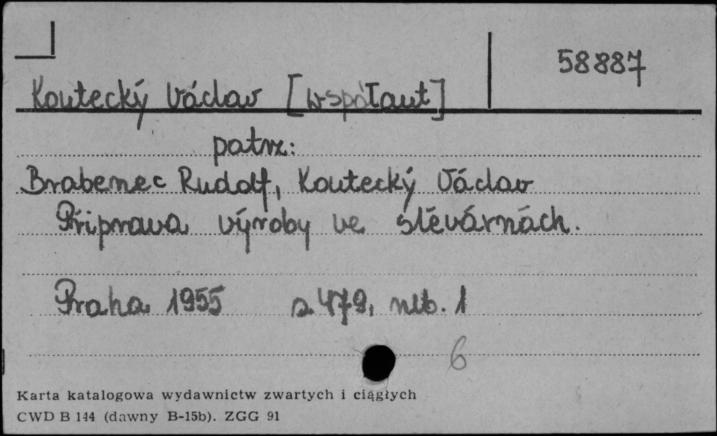 58887
Koutecký Václav [współaut]
patrz:
Brabenec Rudolf, Koutecký Václav
Připrava výroby ve slévárnách.
Praha 1955 s 479, nlb. 1
6
Karta katalogowa wydawnictw zwartych i ciągłych
CWD B 144 (dawny B-15b). ZGG 91